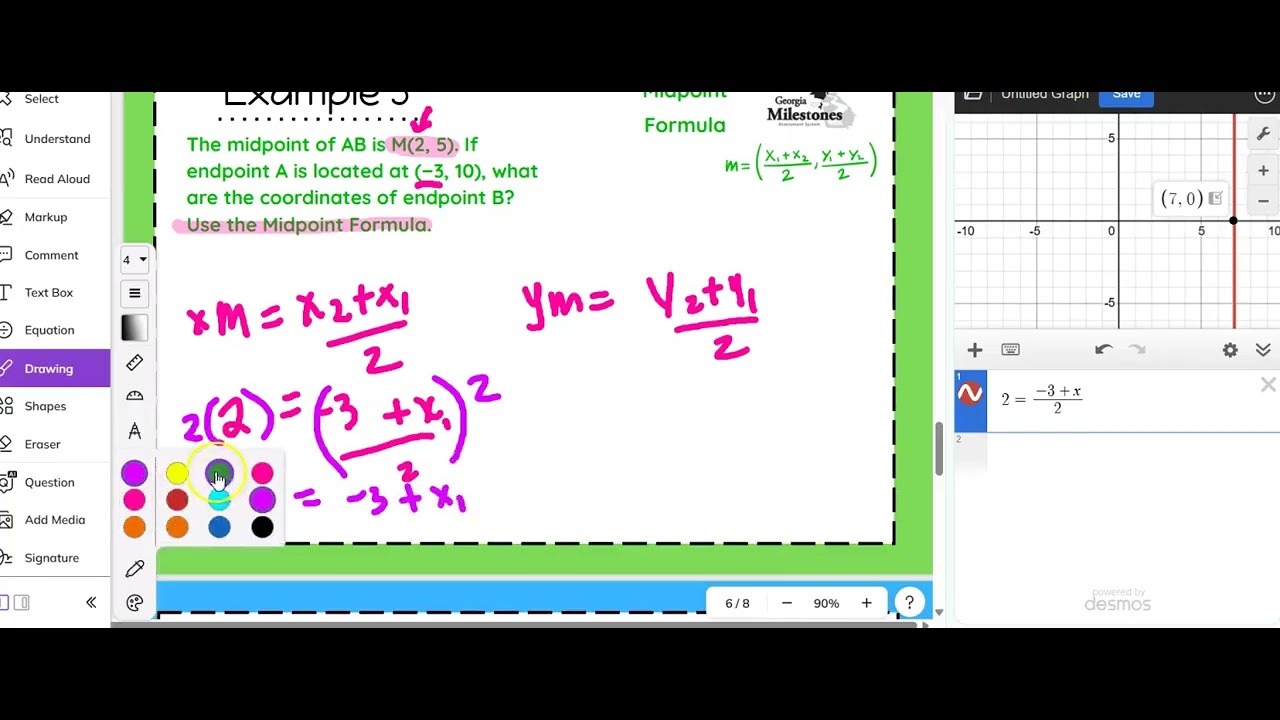 Select
Understand
Read Aloud
Markup
Comment
Text Box
Equation
Drawing
Shapes
Eraser
Question
Add Media
Signature
4
Example 5
The midpoint of AB is M(2, 5). If
endpoint A is located at (−3, 10), what
are the coordinates of endpoint B?
Use the Midpoint Formula.
Midpoint
Formula
Georgia
Milestones
Assessment System
m = (x₁+x₂/2, y₁+y₂/2)
xM = x₂+x₁/2
ym = y₂+y₁/2
2(2) = (-3 + x₁/2)2
= -3 + x₁
6 / 8
90%
?
Untitled Graph
Save
5
(7, 0)
-10
-5
0
5
10
-5
1
2 = −3 + x/2
2
powered by
desmos